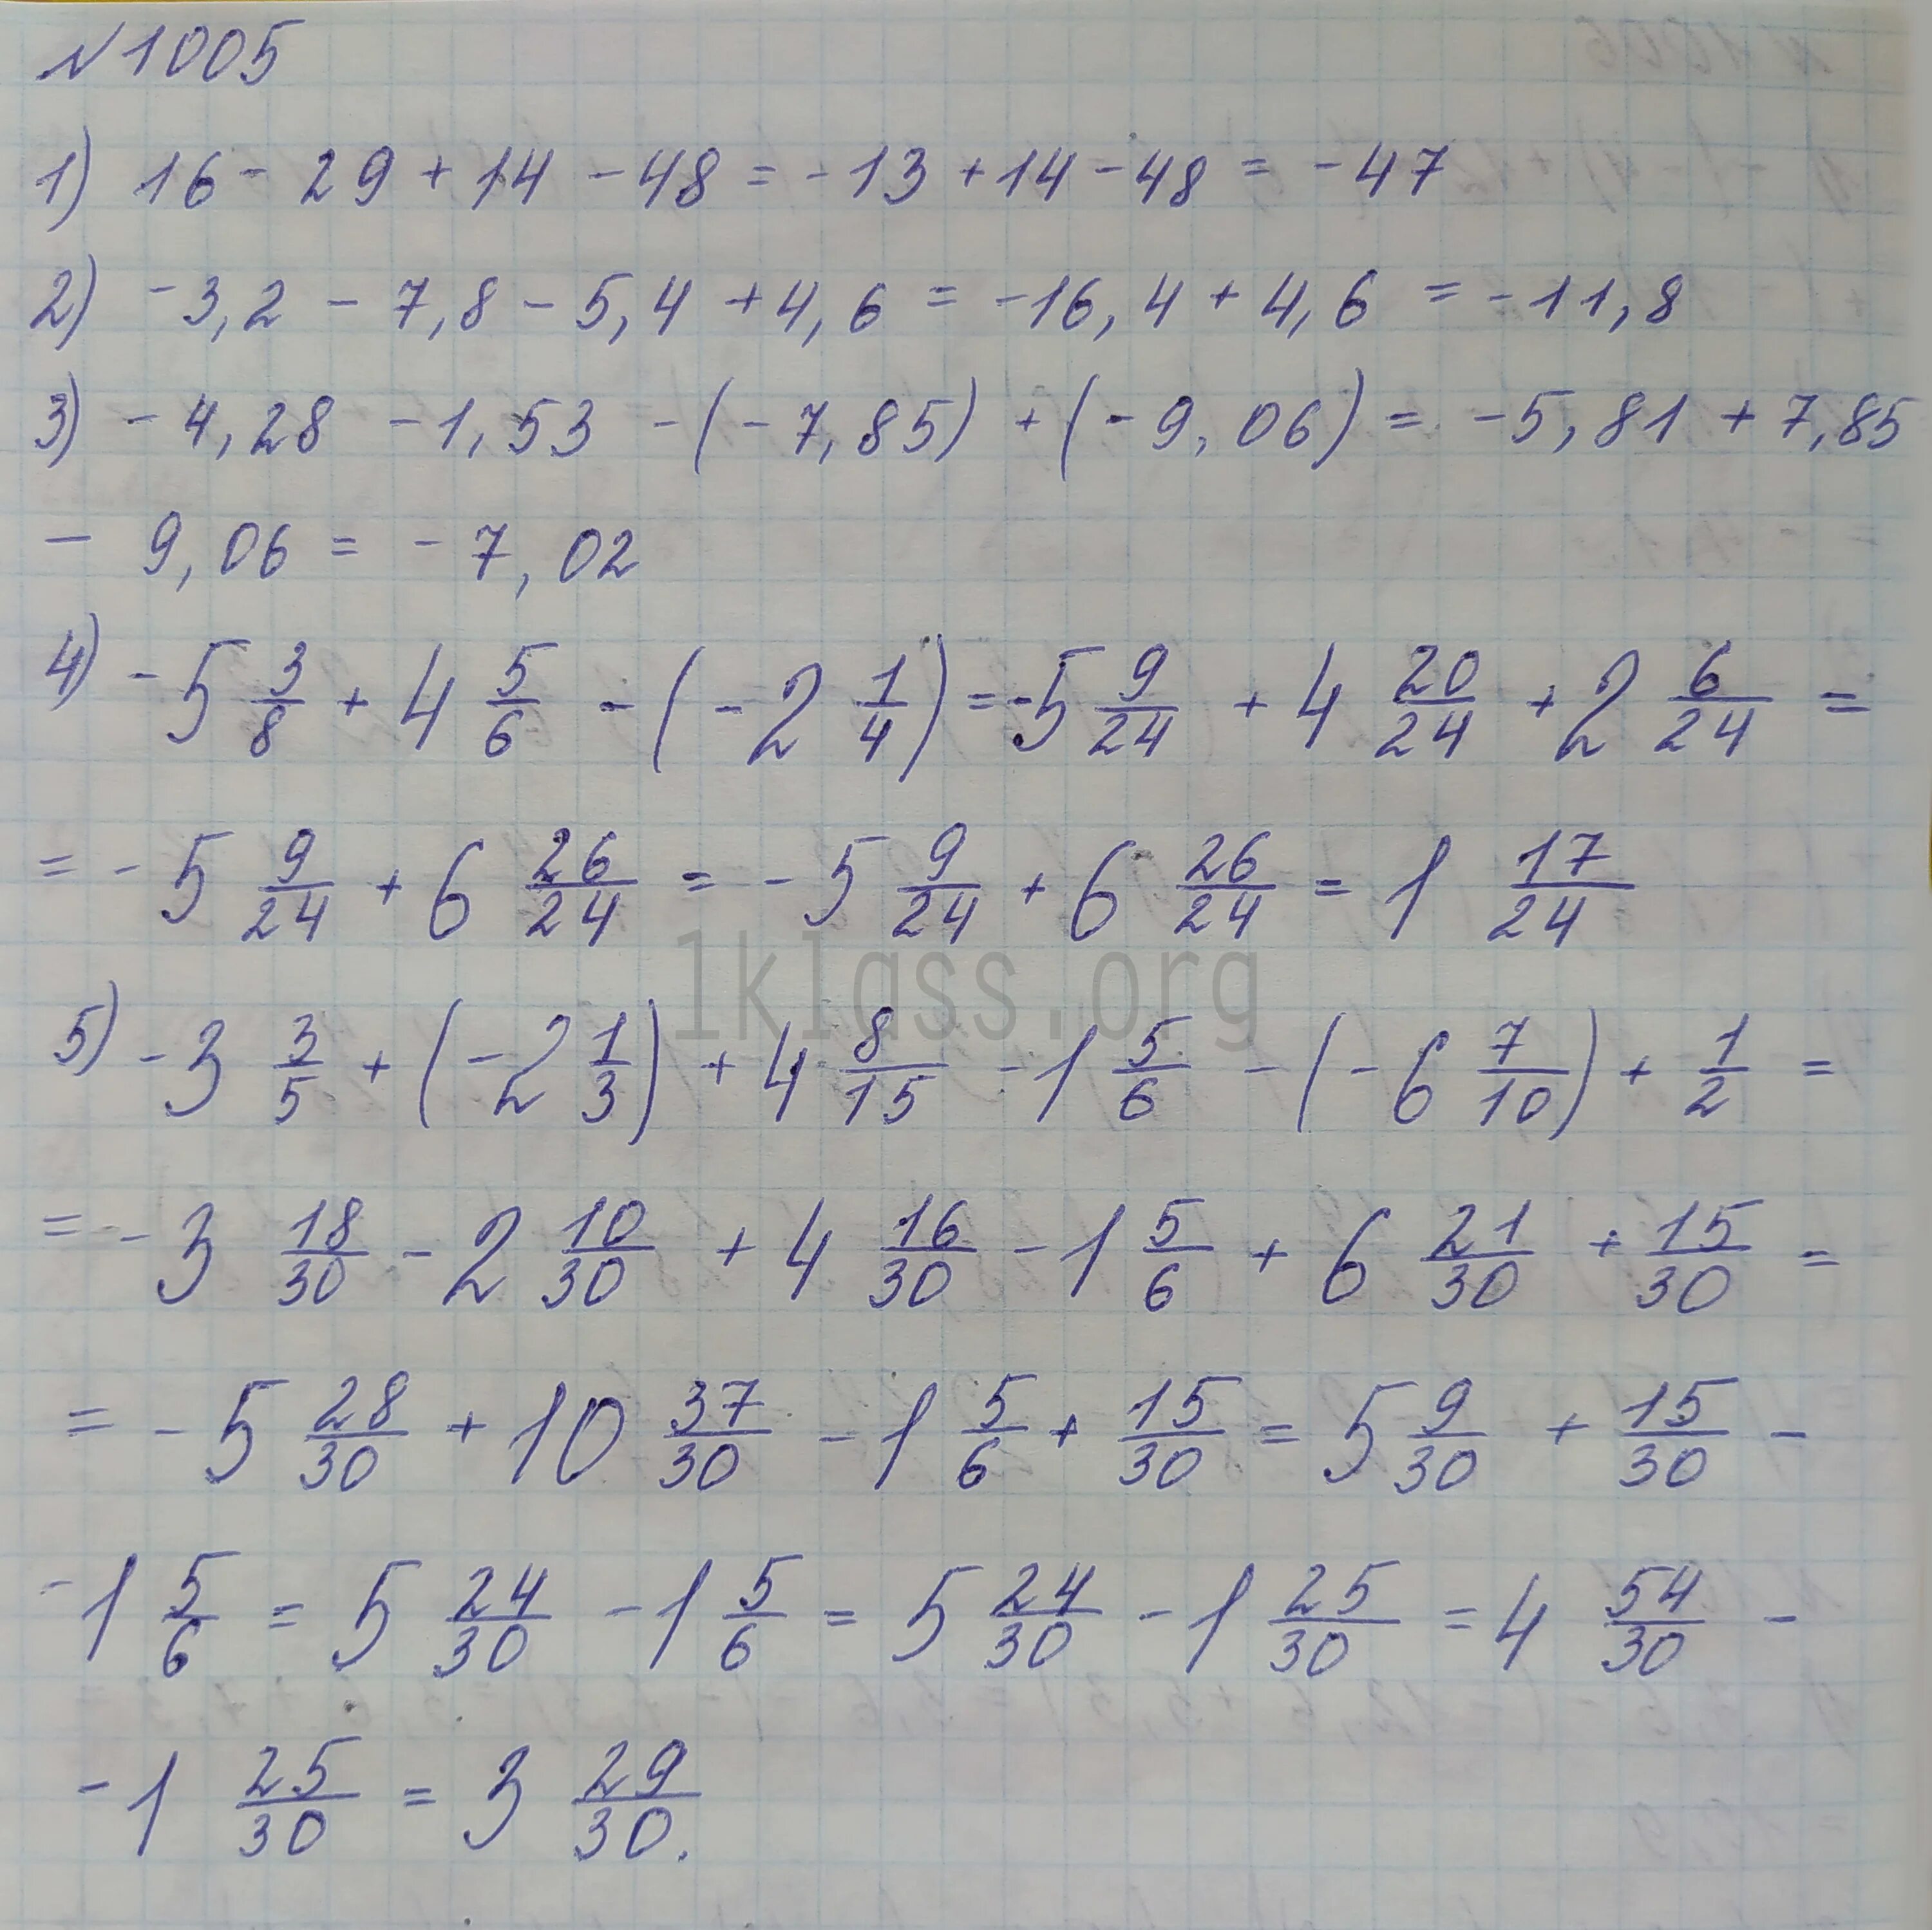 №1005
1) 16 - 29 + 14 - 48 = -13 + 14 - 48 = -47
2) -3,2 - 7,8 - 5,4 + 4,6 = -16,4 + 4,6 = -11,8
3) -4,28 - 1,53 - (-7,85) + (-9,06) = -5,81 + 7,85
- 9,06 = -7,02
4) -5 3/8 + 4 5/6 - (-2 1/4) = -5 9/24 + 4 20/24 + 2 6/24 =
= -5 9/24 + 6 26/24 = -5 9/24 + 6 26/24 = 1 17/24
1klass.org
5) -3 3/5 + (-2 1/3) + 4 8/15 - 1 5/6 - (-6 7/10) + 1/2 =
= -3 18/30 - 2 10/30 + 4 16/30 - 1 5/6 + 6 21/30 + 15/30 =
= -5 28/30 + 10 37/30 - 1 5/6 + 15/30 = 5 9/30 + 15/30 -
-1 5/6 = 5 24/30 - 1 5/6 = 5 24/30 - 1 25/30 = 4 54/30 -
-1 25/30 = 3 29/30.